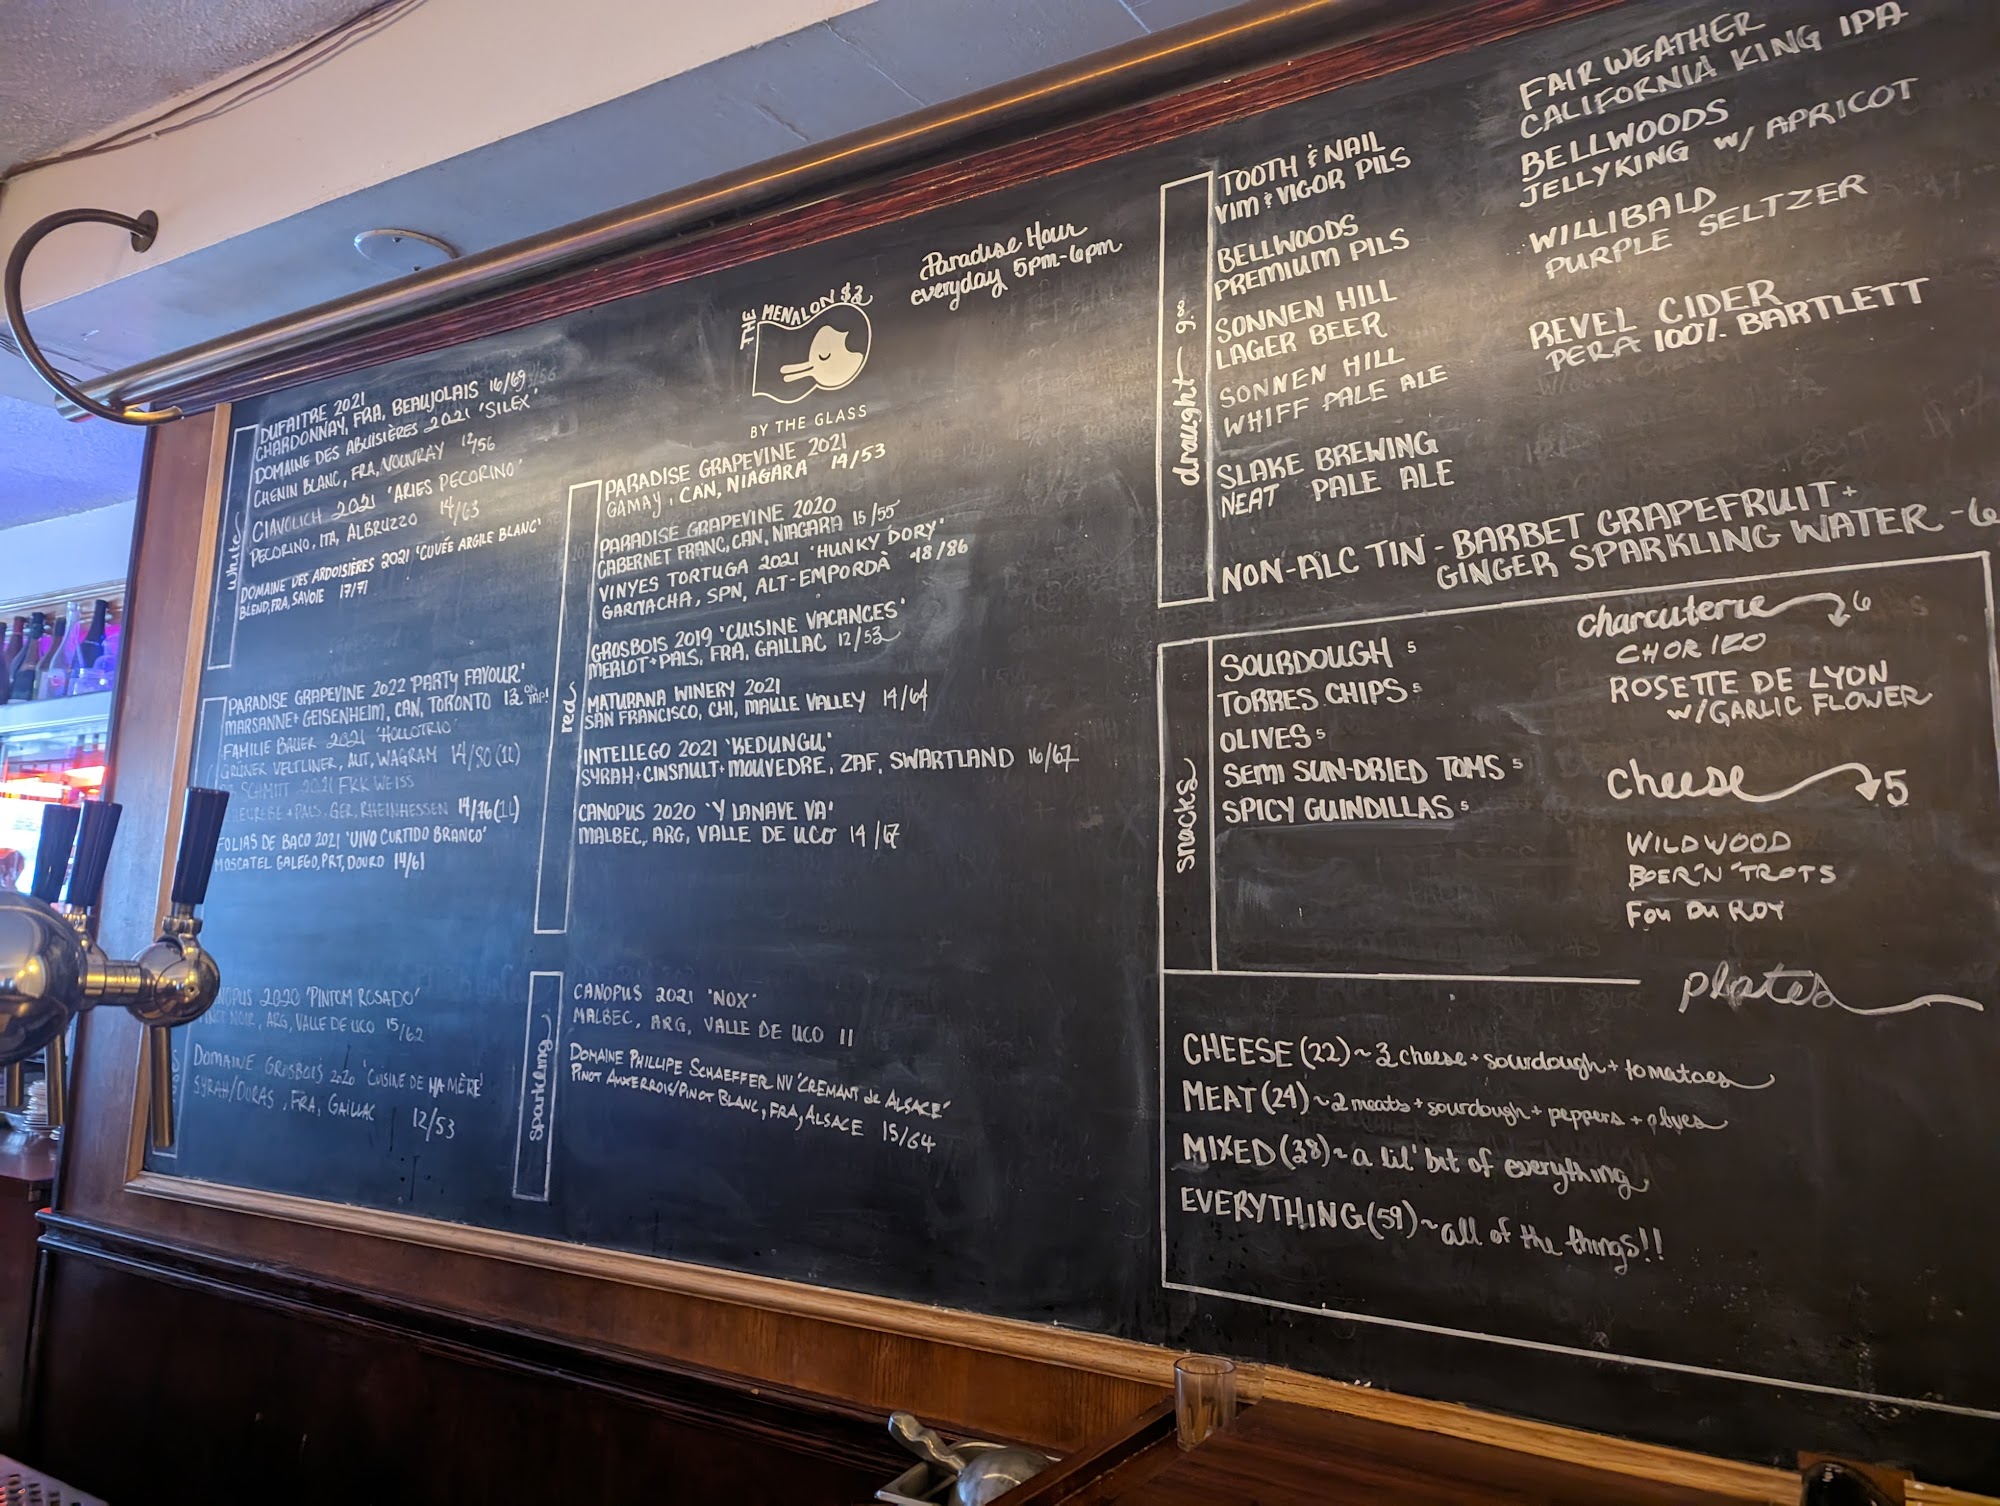 Paradise Hour
everyday 5pm-6pm
THE MENALON $2
BY THE GLASS
white
DUFAITRE 2021
CHARDONNAY, FRA, BEAUJOLAIS 16/69
DOMAINE DES ABUISIÈRES 2021 'SILEX'
CHENIN BLANC, FRA, VOUVRAY 12/56
CIAVOLICH 2021 'ARIES PECORINO'
PECORINO, ITA, ALBRUZZO 14/63
DOMAINE DES ARDOISIÈRES 2021 'CUVÉE ARGILE BLANC'
BLEND, FRA, SAVOIE 17/71
PARADISE GRAPEVINE 2022 'PARTY FAVOUR'
MARSANNE + GEISENHEIM, CAN, TORONTO 12 ON TAP!
FAMILIE BAUER 2021 'HOLLOTRIO'
GRÜNER VELTLINER, AUT, WAGRAM 14/80 (1L)
SCHMITT 2021 FKK WEISS
+ PALS, GER, RHEINHESSEN 14/76 (1L)
FOLIAS DE BACO 2021 'UIVO CURTIDO BRANCO'
MOSCATEL GALEGO, PRT, DOURO 14/61
CANOPUS 2020 'PINTOM ROSADO'
PINOT NOIR, ARG, VALLE DE UCO 15/62
DOMAINE GROSBOIS 2020 'CUISINE DE MA MÈRE'
SYRAH/DURAS, FRA, GAILLAC 12/53
red
PARADISE GRAPEVINE 2021
GAMAY, CAN, NIAGARA 14/53
PARADISE GRAPEVINE 2020
CABERNET FRANC, CAN, NIAGARA 15/55
VINYES TORTUGA 2021 'HUNKY DORY'
GARNACHA, SPN, ALT-EMPORDÀ 18/86
GROSBOIS 2019 'CUISINE VACANCES'
MERLOT + PALS, FRA, GAILLAC 12/53
MATURANA WINERY 2021
SAN FRANCISCO, CHI, MAULE VALLEY 14/64
INTELLEGO 2021 'KEDUNGU'
SYRAH + CINSAULT + MOUVEDRE, ZAF, SWARTLAND 16/67
CANOPUS 2020 'Y LANAVE VA'
MALBEC, ARG, VALLE DE UCO 14/67
sparkling
CANOPUS 2021 'NOX'
MALBEC, ARG, VALLE DE UCO 11
DOMAINE PHILLIPE SCHAEFFER NV 'CREMANT de ALSACE'
PINOT AUXERROIS/PINOT BLANC, FRA, ALSACE 15/64
draught 9.00
TOOTH & NAIL
VIM & VIGOR PILS
BELLWOODS
PREMIUM PILS
SONNEN HILL
LAGER BEER
SONNEN HILL
WHIFF PALE ALE
SLAKE BREWING
NEAT PALE ALE
FAIRWEATHER
CALIFORNIA KING IPA
BELLWOODS
JELLYKING W/ APRICOT
WILLIBALD
PURPLE SELTZER
REVEL CIDER
PERA 100% BARTLETT
NON-ALC TIN - BARBET GRAPEFRUIT +
GINGER SPARKLING WATER - 6
snacks
SOURDOUGH 5
TORRES CHIPS 5
OLIVES 5
SEMI SUN-DRIED TOMS 5
SPICY GUINDILLAS 5
charcuterie 6
CHORIZO
ROSETTE DE LYON
W/GARLIC FLOWER
cheese 5
WILDWOOD
BOER'N'TROTS
FOU DU ROY
plates
CHEESE (22) ~ 3 cheese + sourdough + tomatoes
MEAT (24) ~ 2 meats + sourdough + peppers + olives
MIXED (38) ~ a lil' bit of everything
EVERYTHING (59) ~ all of the things!!